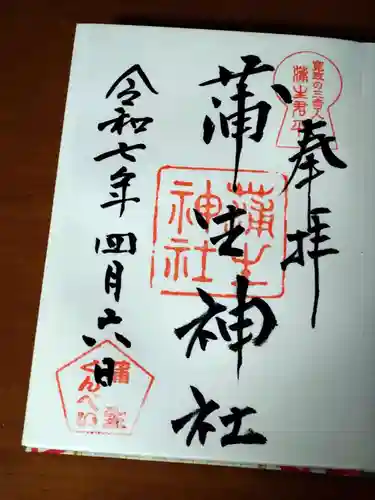 奉拝
寛政の三奇人
蒲生君平
蒲生神社
蒲生
神社
令和七年 四月六日
くんぺい